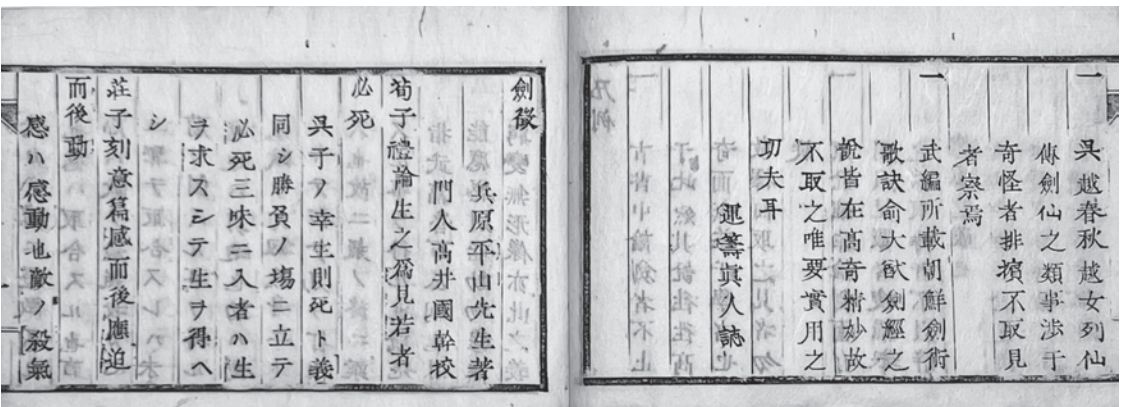 一 呉越春秋越女列仙
傳劍仙之類事渉于
奇怪者排擯不取見
者察焉
一 武編所載朝鮮劍術
歌訣俞大猷劍經之
說皆在高奇精妙故
不取之唯要實用之
功夫耳
運籌眞人誌
劍徴
兵原平山先生著
門人高井國幹校
荀子禮論生之爲見若者
必死
呉子ノ幸生則死ト義
同シ勝負ノ塲ニ立テ
必死三昧ニ入者ハ生
ヲ求スシテ生ヲ得ヘ
シ
莊子刻意篇感而後應迫
而後動
感ハ感動也敵ノ殺氣